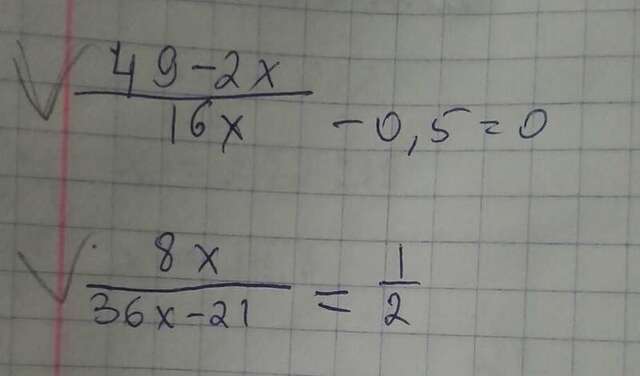 49-2x
16x -0,5=0
8x
36x-21 = 1/2